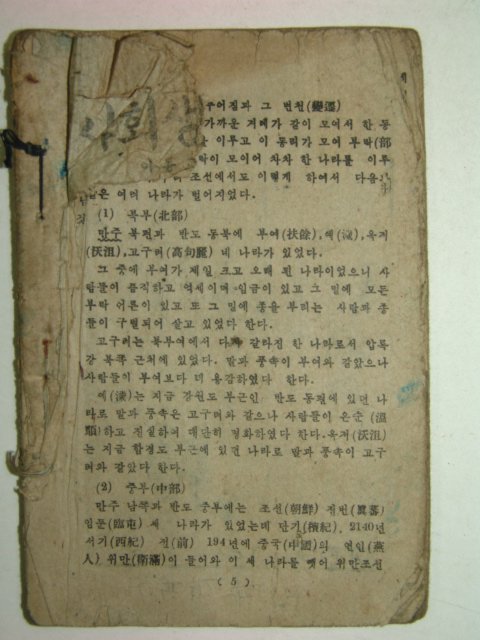 사회생
주어짐과 그 변천(變遷)
가까운 겨레가 같이 모여서 한 동
이루고 이 동리가 모여 부락(部
이 모이어 차차 한 나라를 이루
조선에서도 이렇게 하여서 다음과
같은 여러 나라가 벌어지었다.
(1) 북부(北部)
만주 북편과 반도 동북에 부여(扶餘), 예(濊), 옥저
(沃沮), 고구려(高句麗) 네 나라가 있었다.
그 중에 부여가 제일 크고 오래 된 나라이었으니 사
람들이 큼직하고 억세이며 임금이 있고 그 밑에 모든
부락 어른이 있고 또 그 밑에 종을 부리는 사람과 종
들이 구별되어 살고 있었다 한다.
고구려는 북부여에서 다시 갈라진 한 나라로서 압록
강 북쪽 근처에 있었다. 말과 풍속이 부여와 같았으나
사람들이 부여보다 더 용감하였다 한다.
예(濊)는 지금 강원도 부근인 반도 동편에 있던 나
라로 말과 풍속은 고구려와 같으나 사람들이 온순(溫
順)하고 진실하며 대단히 평화하였다 한다. 옥저(沃沮)
는 지금 함경도 부근에 있던 나라로 말과 풍속이 고구
려와 같았다 한다.
(2) 중부(中部)
만주 남쪽과 반도 중부에는 조선(朝鮮) 진번(眞蕃)
임둔(臨屯) 세 나라가 있었는데 단기(檀紀) 2140년
서기(西紀) 전(前) 194년에 중국(中國)의 연인(燕
人) 위만(衛滿)이 들어와 이 세 나라를 뺏어 위만조선
(5)